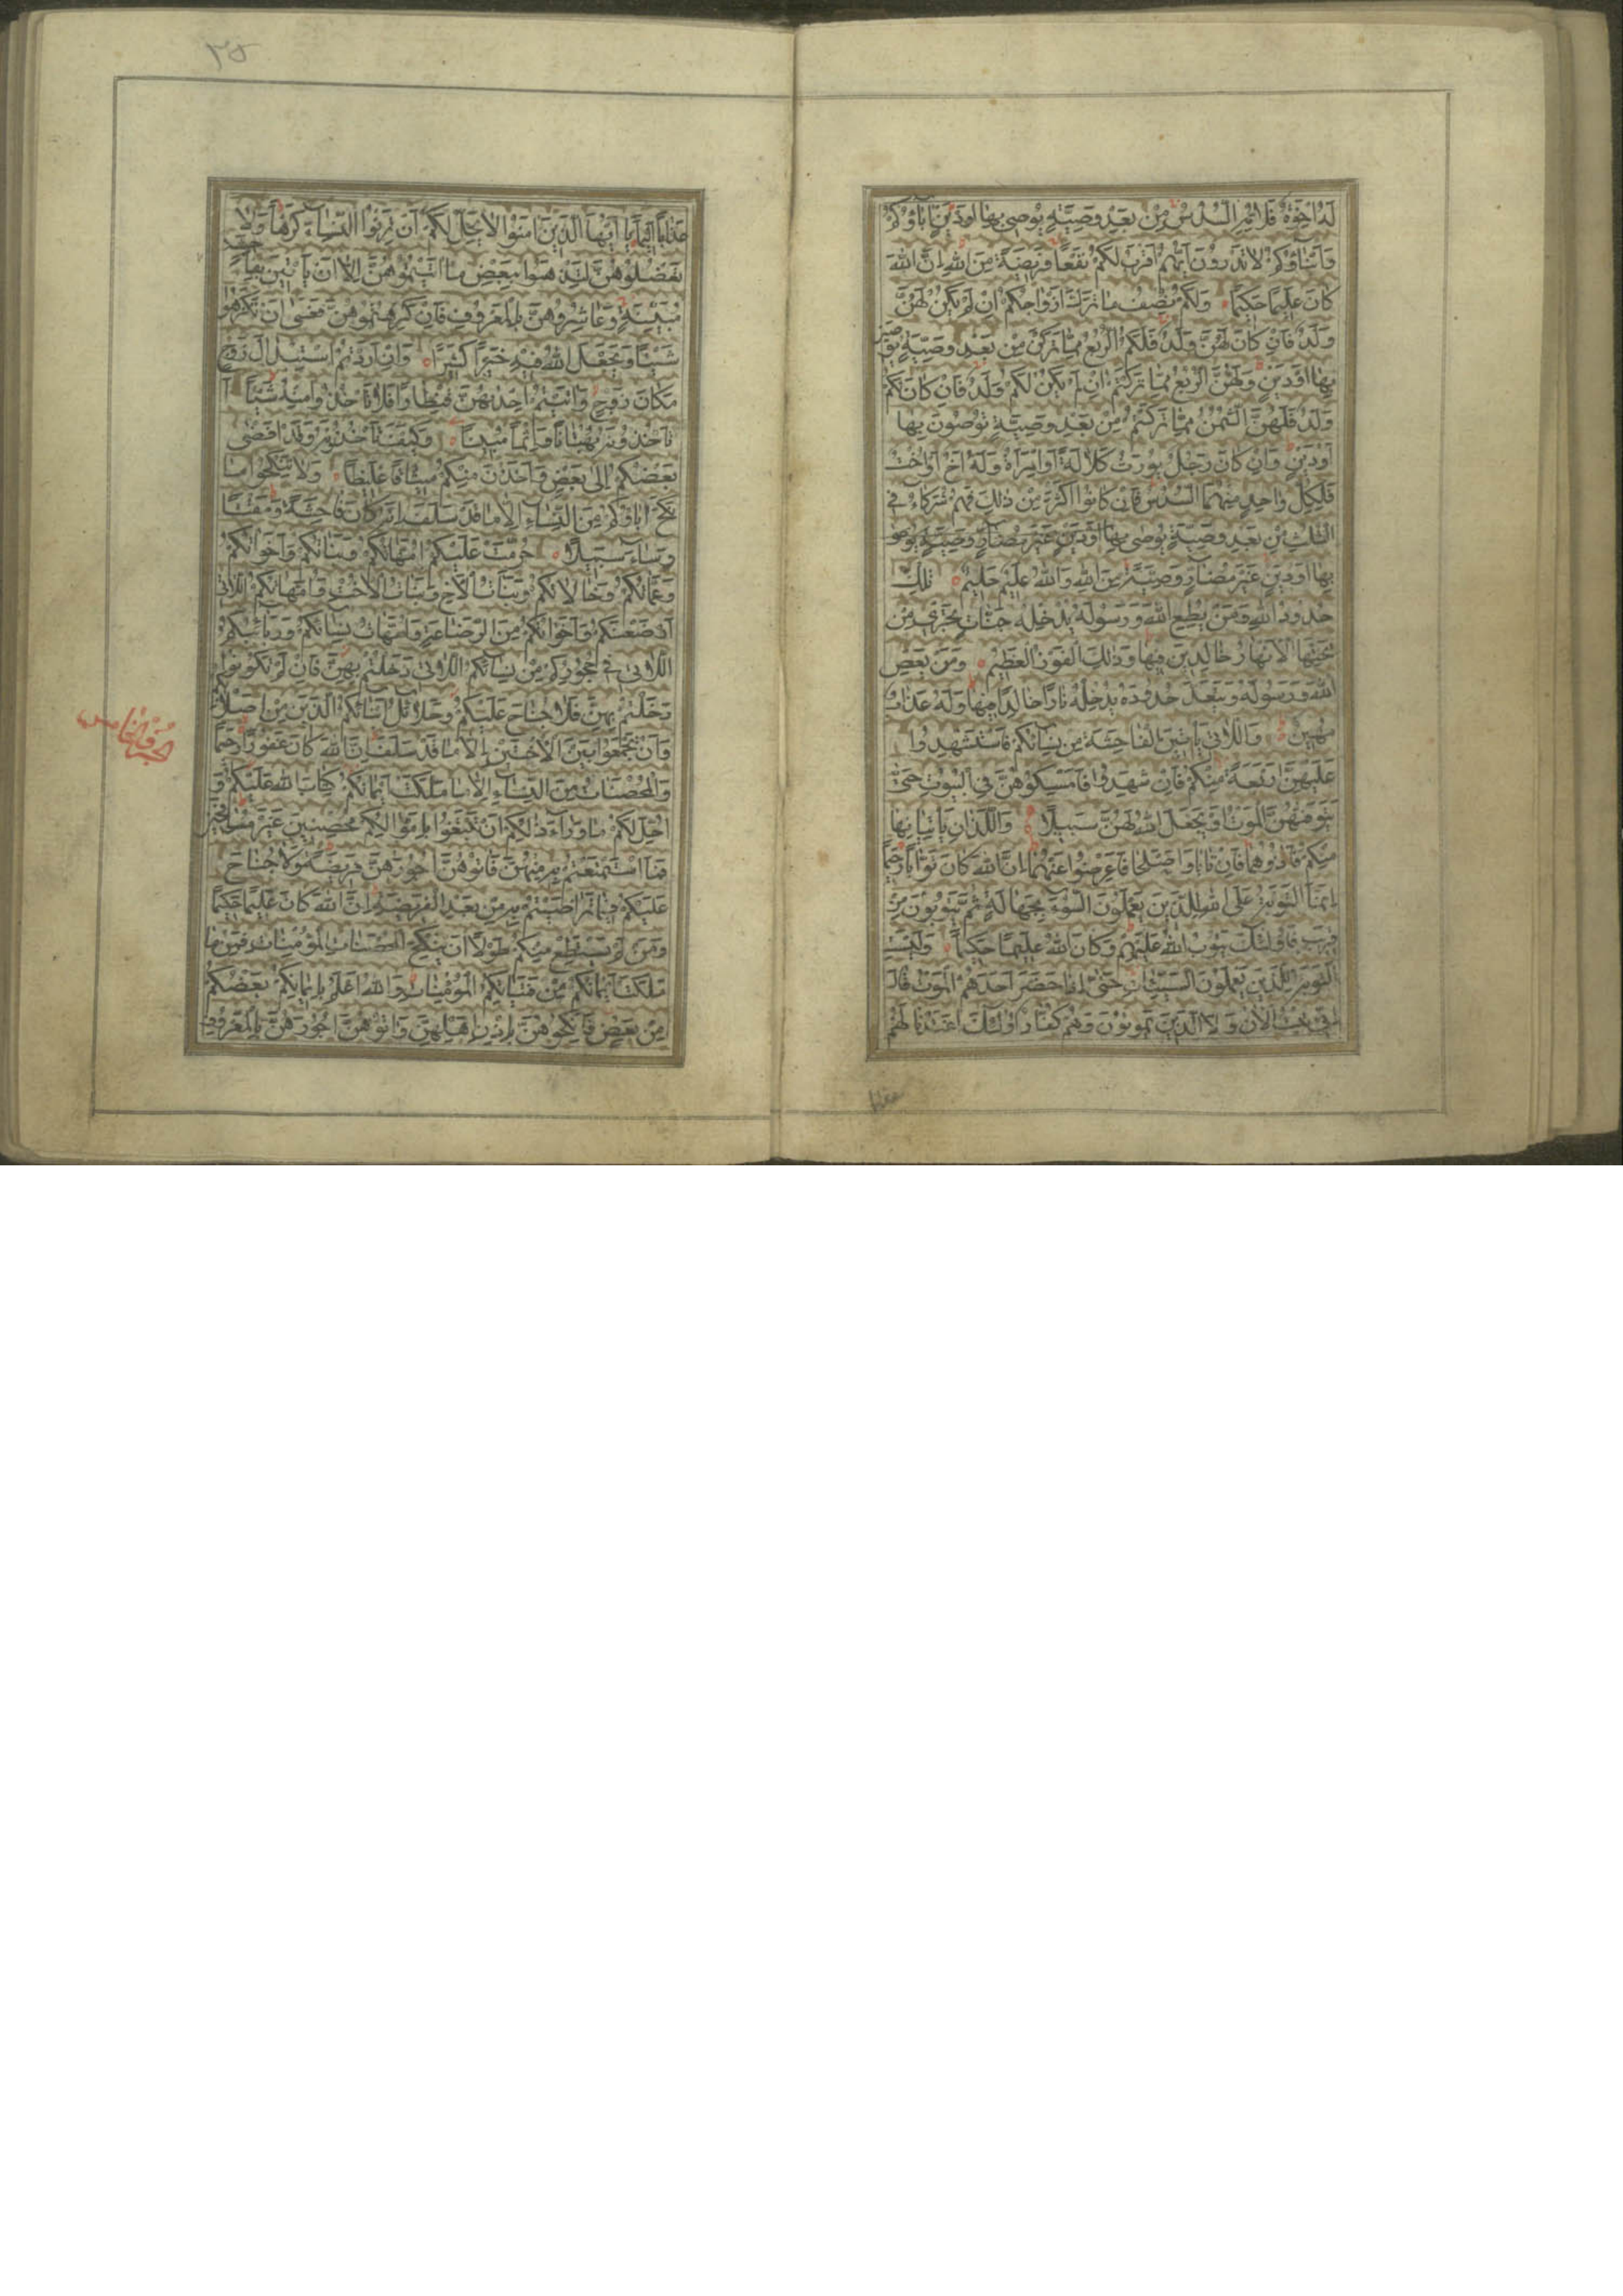 لَهُ اِخْوَةٌ فَلِاُمِّهِ السُّدُسُ مِنْ بَعْدِ وَصِيَّةٍ يُوصِي بِهَا اَوْ دَيْنٍ اٰبَاؤُكُمْ
وَاَبْنَاؤُكُمْ لَا تَدْرُونَ اَيُّهُمْ اَقْرَبُ لَكُمْ نَفْعًا فَرِيضَةً مِنَ اللهِ اِنَّ اللهَ
كَانَ عَلِيمًا حَكِيمًا وَلَكُمْ نِصْفُ مَا تَرَكَ اَزْوَاجُكُمْ اِنْ لَمْ يَكُنْ لَهُنَّ
وَلَدٌ فَاِنْ كَانَ لَهُنَّ وَلَدٌ فَلَكُمُ الرُّبُعُ مِمَّا تَرَكْنَ مِنْ بَعْدِ وَصِيَّةٍ يُوصِينَ
بِهَا اَوْ دَيْنٍ وَلَهُنَّ الرُّبُعُ مِمَّا تَرَكْتُمْ اِنْ لَمْ يَكُنْ لَكُمْ وَلَدٌ فَاِنْ كَانَ لَكُمْ
وَلَدٌ فَلَهُنَّ الثُّمُنُ مِمَّا تَرَكْتُمْ مِنْ بَعْدِ وَصِيَّةٍ تُوصُونَ بِهَا
اَوْ دَيْنٍ وَاِنْ كَانَ رَجُلٌ يُورَثُ كَلَالَةً اَوِ امْرَاَةٌ وَلَهُ اَخٌ اَوْ اُخْتٌ
فَلِكُلِّ وَاحِدٍ مِنْهُمَا السُّدُسُ فَاِنْ كَانُوا اَكْثَرَ مِنْ ذٰلِكَ فَهُمْ شُرَكَاءُ فِي
الثُّلُثِ مِنْ بَعْدِ وَصِيَّةٍ يُوصٰى بِهَا اَوْ دَيْنٍ غَيْرَ مُضَارٍّ وَصِيَّةٍ يُوصٰى
بِهَا اَوْ دَيْنٍ غَيْرَ مُضَارٍّ وَصِيَّةً مِنَ اللهِ وَاللهُ عَلِيمٌ حَلِيمٌ تِلْكَ
حُدُودُ اللهِ وَمَنْ يُطِعِ اللهَ وَرَسُولَهُ يُدْخِلْهُ جَنَّاتٍ تَجْرِي مِنْ
تَحْتِهَا الْاَنْهَارُ خَالِدِينَ فِيهَا وَذٰلِكَ الْفَوْزُ الْعَظِيمُ وَمَنْ يَعْصِ
اللهَ وَرَسُولَهُ وَيَتَعَدَّ حُدُودَهُ يُدْخِلْهُ نَارًا خَالِدًا فِيهَا وَلَهُ عَذَابٌ
مُهِينٌ وَاللَّاتِي يَأْتِينَ الْفَاحِشَةَ مِنْ نِسَائِكُمْ فَاسْتَشْهِدُوا
عَلَيْهِنَّ اَرْبَعَةً مِنْكُمْ فَاِنْ شَهِدُوا فَاَمْسِكُوهُنَّ فِي الْبُيُوتِ حَتّٰى
يَتَوَفّٰهُنَّ الْمَوْتُ اَوْ يَجْعَلَ اللهُ لَهُنَّ سَبِيلًا وَاللَّذَانِ يَأْتِيَانِهَا
مِنْكُمْ فَاٰذُوهُمَا فَاِنْ تَابَا وَاَصْلَحَا فَاَعْرِضُوا عَنْهُمَا اِنَّ اللهَ كَانَ تَوَّابًا رَحِيمًا
اِنَّمَا التَّوْبَةُ عَلَى اللهِ لِلَّذِينَ يَعْمَلُونَ السُّوءَ بِجَهَالَةٍ ثُمَّ يَتُوبُونَ مِنْ
قَرِيبٍ فَاُولٰئِكَ يَتُوبُ اللهُ عَلَيْهِمْ وَكَانَ اللهُ عَلِيمًا حَكِيمًا وَلَيْسَتِ
التَّوْبَةُ لِلَّذِينَ يَعْمَلُونَ السَّيِّئَاتِ حَتّٰى اِذَا حَضَرَ اَحَدَهُمُ الْمَوْتُ قَالَ
اِنِّي تُبْتُ الْاٰنَ وَلَا الَّذِينَ يَمُوتُونَ وَهُمْ كُفَّارٌ اُولٰئِكَ اَعْتَدْنَا لَهُمْ
٣٥
عَذَابًا اَلِيمًا يَا اَيُّهَا الَّذِينَ اٰمَنُوا لَا يَحِلُّ لَكُمْ اَنْ تَرِثُوا النِّسَاءَ كَرْهًا وَلَا
تَعْضُلُوهُنَّ لِتَذْهَبُوا بِبَعْضِ مَا اٰتَيْتُمُوهُنَّ اِلَّا اَنْ يَأْتِينَ بِفَاحِشَةٍ
مُبَيِّنَةٍ وَعَاشِرُوهُنَّ بِالْمَعْرُوفِ فَاِنْ كَرِهْتُمُوهُنَّ فَعَسٰى اَنْ تَكْرَهُوا
شَيْئًا وَيَجْعَلَ اللهُ فِيهِ خَيْرًا كَثِيرًا وَاِنْ اَرَدْتُمُ اسْتِبْدَالَ زَوْجٍ
مَكَانَ زَوْجٍ وَاٰتَيْتُمْ اِحْدٰيهُنَّ قِنْطَارًا فَلَا تَأْخُذُوا مِنْهُ شَيْئًا اَ
تَأْخُذُونَهُ بُهْتَانًا وَاِثْمًا مُبِينًا وَكَيْفَ تَأْخُذُونَهُ وَقَدْ اَفْضٰى
بَعْضُكُمْ اِلٰى بَعْضٍ وَاَخَذْنَ مِنْكُمْ مِيثَاقًا غَلِيظًا وَلَا تَنْكِحُوا مَا
نَكَحَ اٰبَاؤُكُمْ مِنَ النِّسَاءِ اِلَّا مَا قَدْ سَلَفَ اِنَّهُ كَانَ فَاحِشَةً وَمَقْتًا
وَسَاءَ سَبِيلًا حُرِّمَتْ عَلَيْكُمْ اُمَّهَاتُكُمْ وَبَنَاتُكُمْ وَاَخَوَاتُكُمْ
وَعَمَّاتُكُمْ وَخَالَاتُكُمْ وَبَنَاتُ الْاَخِ وَبَنَاتُ الْاُخْتِ وَاُمَّهَاتُكُمُ اللَّاتِي
اَرْضَعْنَكُمْ وَاَخَوَاتُكُمْ مِنَ الرَّضَاعَةِ وَاُمَّهَاتُ نِسَائِكُمْ وَرَبَائِبُكُمُ
اللَّاتِي فِي حُجُورِكُمْ مِنْ نِسَائِكُمُ اللَّاتِي دَخَلْتُمْ بِهِنَّ فَاِنْ لَمْ تَكُونُوا
دَخَلْتُمْ بِهِنَّ فَلَا جُنَاحَ عَلَيْكُمْ وَحَلَائِلُ اَبْنَائِكُمُ الَّذِينَ مِنْ اَصْلَابِكُمْ
وَاَنْ تَجْمَعُوا بَيْنَ الْاُخْتَيْنِ اِلَّا مَا قَدْ سَلَفَ اِنَّ اللهَ كَانَ غَفُورًا رَحِيمًا
الجزو الخامس
وَالْمُحْصَنَاتُ مِنَ النِّسَاءِ اِلَّا مَا مَلَكَتْ اَيْمَانُكُمْ كِتَابَ اللهِ عَلَيْكُمْ وَ
اُحِلَّ لَكُمْ مَا وَرَاءَ ذٰلِكُمْ اَنْ تَبْتَغُوا بِاَمْوَالِكُمْ مُحْصِنِينَ غَيْرَ مُسَافِحِينَ
فَمَا اسْتَمْتَعْتُمْ بِهِ مِنْهُنَّ فَاٰتُوهُنَّ اُجُورَهُنَّ فَرِيضَةً وَلَا جُنَاحَ
عَلَيْكُمْ فِيمَا تَرَاضَيْتُمْ بِهِ مِنْ بَعْدِ الْفَرِيضَةِ اِنَّ اللهَ كَانَ عَلِيمًا حَكِيمًا
وَمَنْ لَمْ يَسْتَطِعْ مِنْكُمْ طَوْلًا اَنْ يَنْكِحَ الْمُحْصَنَاتِ الْمُؤْمِنَاتِ فَمِنْ مَا
مَلَكَتْ اَيْمَانُكُمْ مِنْ فَتَيَاتِكُمُ الْمُؤْمِنَاتِ وَاللهُ اَعْلَمُ بِاِيمَانِكُمْ بَعْضُكُمْ
مِنْ بَعْضٍ فَانْكِحُوهُنَّ بِاِذْنِ اَهْلِهِنَّ وَاٰتُوهُنَّ اُجُورَهُنَّ بِالْمَعْرُوفِ